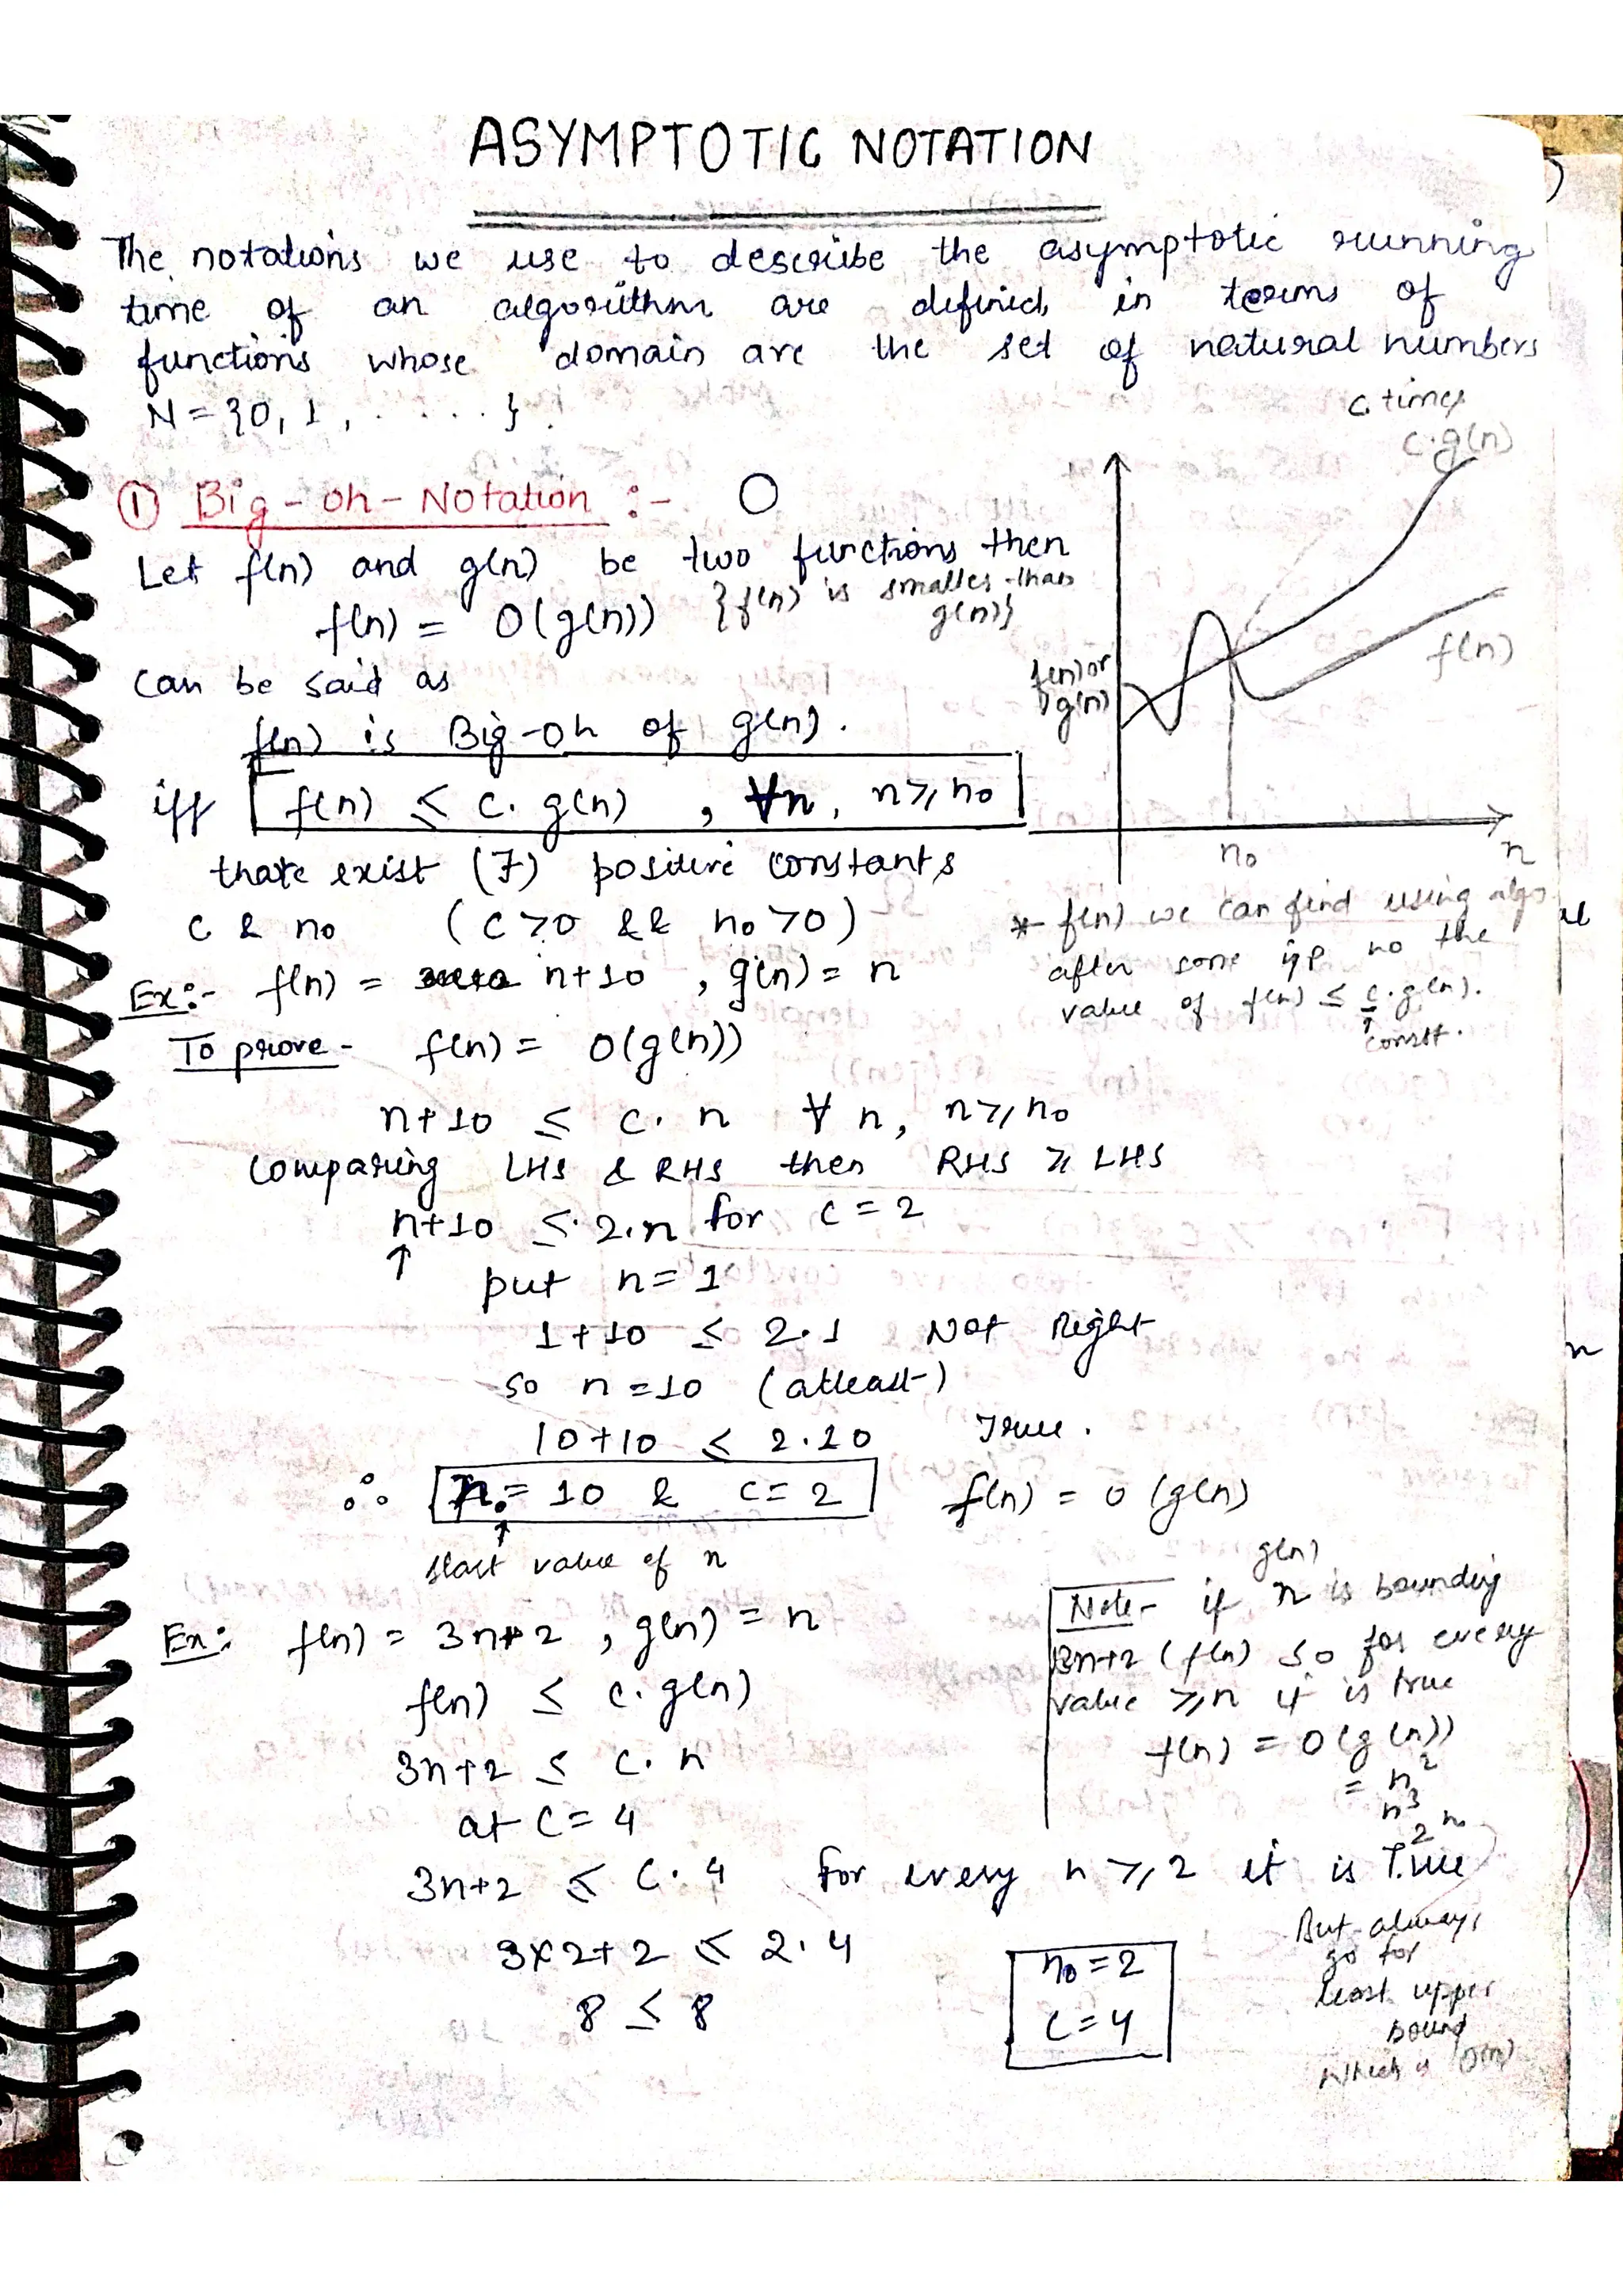 ASYMPTOTIC NOTATION
The notations we use to describe the asymptotic running
time of an algorithm are defined in terms of
functions whose domain are the set of natural numbers
N = {0, 1, ..... }.
① Big-oh-Notation :- O
Let f(n) and g(n) be two functions then
f(n) = O(g(n)) {f(n) is smaller than
g(n)}
can be said as
f(n) is Big-oh of g(n).
iff f(n) ≤ c. g(n) , ∀n, n≥n₀
c. times
c.g(n)
f(n)
f(n) or
g(n)
n₀ n
exist positive constants
c & n₀ (c>0 && n₀>0)
* f(n) we can find using algo
after some i/p n₀ the
value of f(n) ≤ c.g(n).
↑
constt.
Ex:- f(n) = n+10 , g(n) = n
To prove - f(n) = O(g(n))
n+10 ≤ c. n ∀ n, n≥n₀
Comparing LHS & RHS then RHS ≥ LHS
n+10 ≤ 2.n for c = 2
↑
put n = 1
1+10 ≤ 2.1 Not Right
so n = 10 (atleast)
10+10 ≤ 2.10 True.
∴ n₀ = 10 & c = 2 f(n) = O(g(n)
↑
start value of n
Ex: f(n) = 3n+2 , g(n) = n
f(n) ≤ c. g(n)
3n+2 ≤ c. n
at c = 4
3n+2 ≤ c. 4 for every n ≥ 2 it is True
3x2+2 ≤ 2.4
8 ≤ 8
n₀ = 2
c = 4
g(n)
Note- if n is bounding
3n+2 (f(n) so for every
value ≥n it is true
f(n) = O(g(n))
= n²
n³
2ⁿ
But always
go for
least upper
bound
which is O(n)